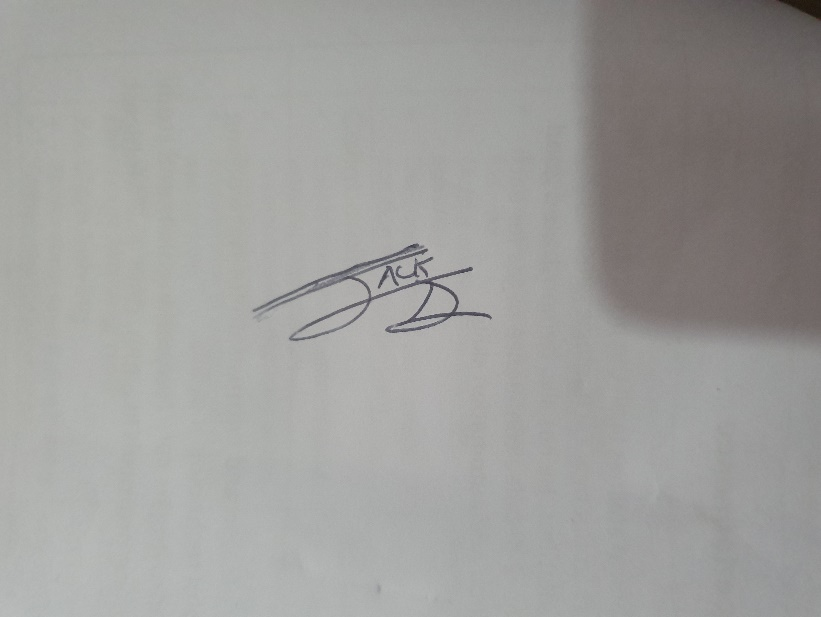 JACK
D